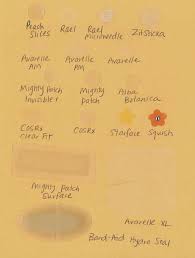 Peach Slices
Rael
Rael Microneedle
ZitSticka
Avarelle AM
Avarelle PM
Avarelle
Mighty Patch Invisible+
Mighty patch
Alba Botanica
CosRx Clear Fit
CosRx
Starface
Squish
Mighty Patch Surface
Avarelle XL
Band-Aid Hydro Seal